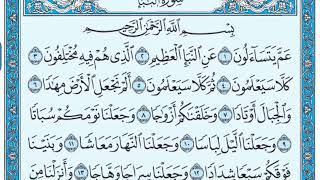 سورة النبأ
بسم الله الرحمن الرحيم
عَمَّ يَتَسَآءَلُونَ ١ عَنِ ٱلنَّبَإِ ٱلْعَظِيمِ ٢ ٱلَّذِى هُمْ فِيهِ مُخْتَلِفُونَ ٣
كَلَّا سَيَعْلَمُونَ ٤ ثُمَّ كَلَّا سَيَعْلَمُونَ ٥ أَلَمْ نَجْعَلِ ٱلْأَرْضَ مِهَٰدًا ٦
وَٱلْجِبَالَ أَوْتَادًا ٧ وَخَلَقْنَٰكُمْ أَزْوَٰجًا ٨ وَجَعَلْنَا نَوْمَكُمْ سُبَاتًا
٩ وَجَعَلْنَا ٱلَّيْلَ لِبَاسًا ١٠ وَجَعَلْنَا ٱلنَّهَارَ مَعَاشًا ١١ وَبَنَيْنَا
فَوْقَكُمْ سَبْعًا شِدَادًا ١٢ وَجَعَلْنَا سِرَاجًا وَهَّاجًا ١٣ وَأَنزَلْنَا مِنَ